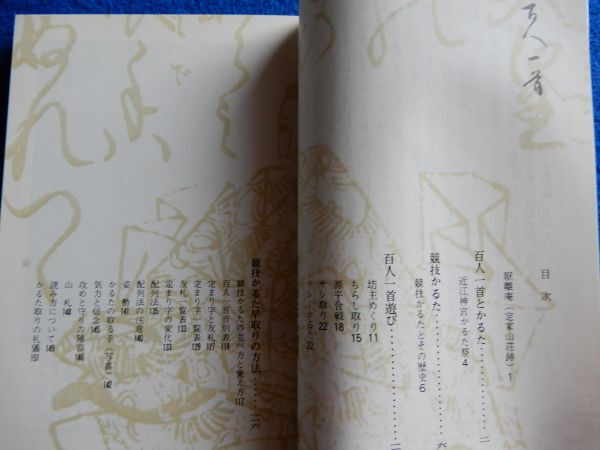 百人一首
目次
厭離庵（定家山荘跡） 1
百人一首とかるた……………二
近江神宮かるた祭 4
競技かるた……………六
競技かるたとその歴史 6
百人一首遊び……………一一
坊主めくり 11
ちらし取り 15
源平合戦 18
サシ取り 22
リレーかるた 22
競技かるた早取りの方法……一一六
競技かるたの並べ方と覚え方 117
百人一首音別表 118
定まり字と友札 127
定まり字一覧表 129
友札一覧表 133
定まり字の変化 133
配列法 135
配列法の注意 140
姿勢 141
かるたの取る手（写真） 142
気力と信念 145
攻めと守りの陣容 146
山札 148
読み方について 149
かるた取りの礼儀 151